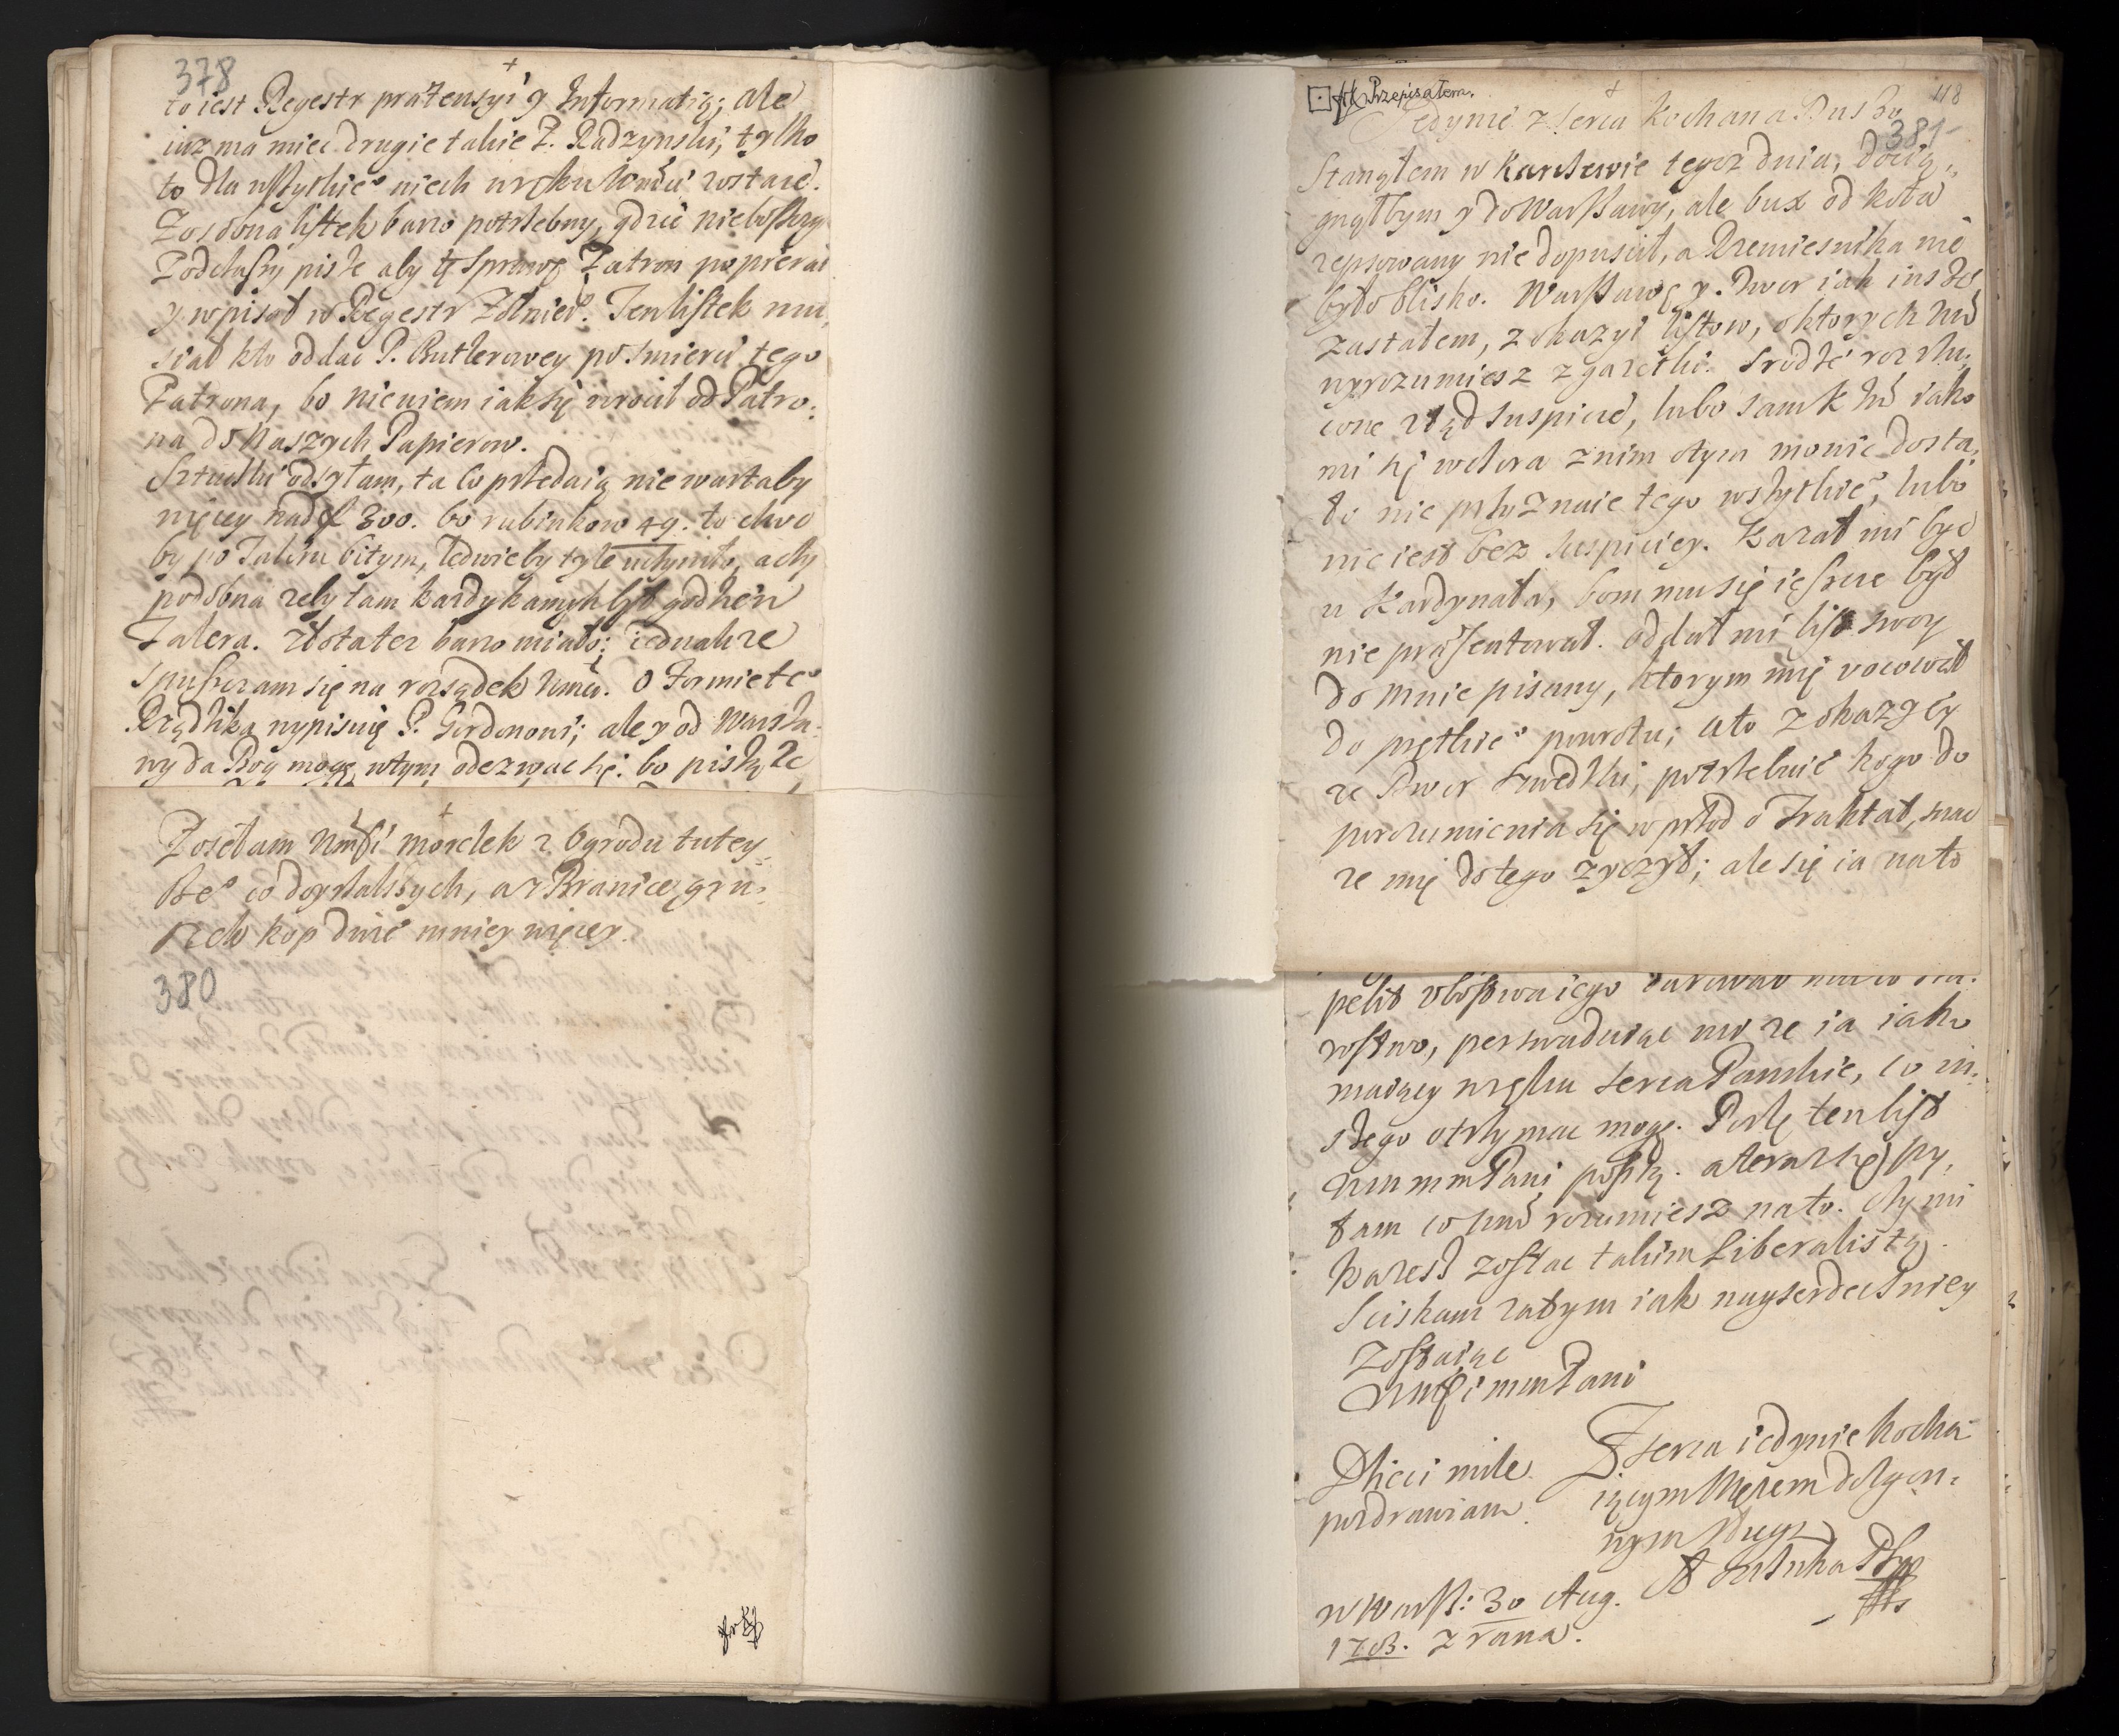 378
to iest Regestr prætensyi y Informatią; ale
iuz ma miec drugie takie P. Radzynski; tylko
to dla wszytkie° niech w ręku Wmści zostaie.
Zosobna listek barzo potrzebny, gdzie nieboszczyk
Podczaszy pisze aby tę sprawę Patron popierał
y wpisał w Regestr Żołnier. Ten listek mu„
siał kto oddac P. Butlerowey po smierci tego
Patrona, bo nie wiem iak się wrocił od Patro„
na do Naszych Papierow.
Sztuczki odsyłam, ta co przedaią nie warta by
więcey nad f 300. bo rubinkow 49. to choc
by po Taleru bitym, ledwieby tyle uczyniło, a czy
podobna zeby tam kazdy kamyk był godzien
Talera. Złota tez barzo mało; iednakze
spuszczam się na rozsądek Wmści. O Formie te°
Rządzika wypisuię P. Gordonowi; ale y od Warsza„
wy da Bog mogę w tym odezwac się. bo piszą ze
Posełam Wmści morelek z Ogrodu tutey„
sze° co doyrzalszych, a z Branice gru„
szek kop dwie mniey więcey.
380
Przepisałem.
118
381
Jedynie z serca kochana Duszko
Stanąłem w Karczewie tegoz dnia, docią„
gnąłbym y do Warszawy, ale bux od koła
zepsowany nie dopuscił, a Rzemiesnika nie
było blisko. Warszawę y Dwor iak insze
zastałem, z okazyi listow, o ktorych Wmść
wyrozumiesz z gazetki. Srodze rozrzu„
cone ztąd suspicie, lubo sam K Jmść iako
mi się wczora z nim o tym mowic dosta„
ło nie przyznaie tego wszytkie°, lubo
nie iest bez suspiciey. Kazał mi byc
u Kardynała, bom mu się ieszcze był
nie præsentował. oddał mi list swoy
do mnie pisany, ktorym mię vocował
do prętkie° powrotu; a to z okazyey
ze Dwor Szwedzki, potrzebuie kogo do
porozumienia się wprzod o Traktat, snac
ze mię do tego zyczył; ale się ia na to
rostwo, perswaduiąc mu ze ia iako
maiący w ręku serca Panskie, co in„
szego otrzymac mogę. Posłę ten list
Wm mm Pani poszlę. a teraz się py„
tam co Wmść rozumiesz na to. czy mi
kazesz zostac takim Liberalistą.
Sciskam zatym iak nayserdeczniey
Zostaiąc
Wmści mm Pani
Z serca iedynie kocha„
iącym Męzem dozgon„
nym sługą
Dzieci mile
pozdrawiam.
w Warsz: 30 Aug.
1703. z rana.